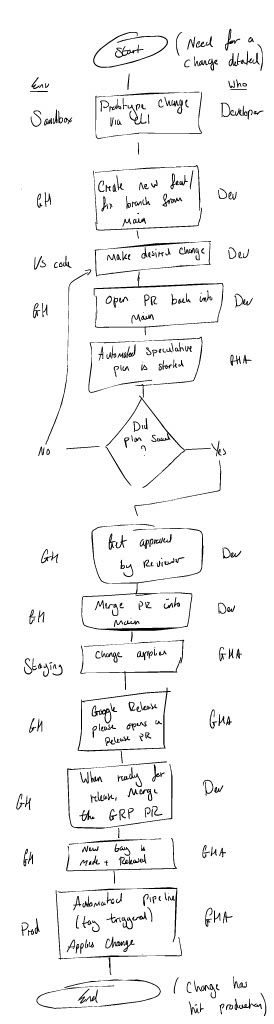 Start
(Need for a
change detected)
Env
Who
Sandbox
Prototype change
via CLI
Developer
GH
Create new feat/
fix branch from
main
Dev
VS code
Make desired change
Dev
GH
Open PR back into
main
Dev
Automated Speculative
plan is started
GHA
Did
plan succeed
?
No
Yes
GH
Get approved
by Reviewer
Dev
GH
Merge PR into
main
Dev
Staging
Change applies
GHA
GH
Google Release
please opens a
Release PR
GHA
GH
When ready for
release, Merge
the GRP PR
Dev
GH
New tag is
Made + Released
GHA
Prod
Automated Pipeline
(tag triggered)
Applies Change
GHA
End
(Change has
hit production)